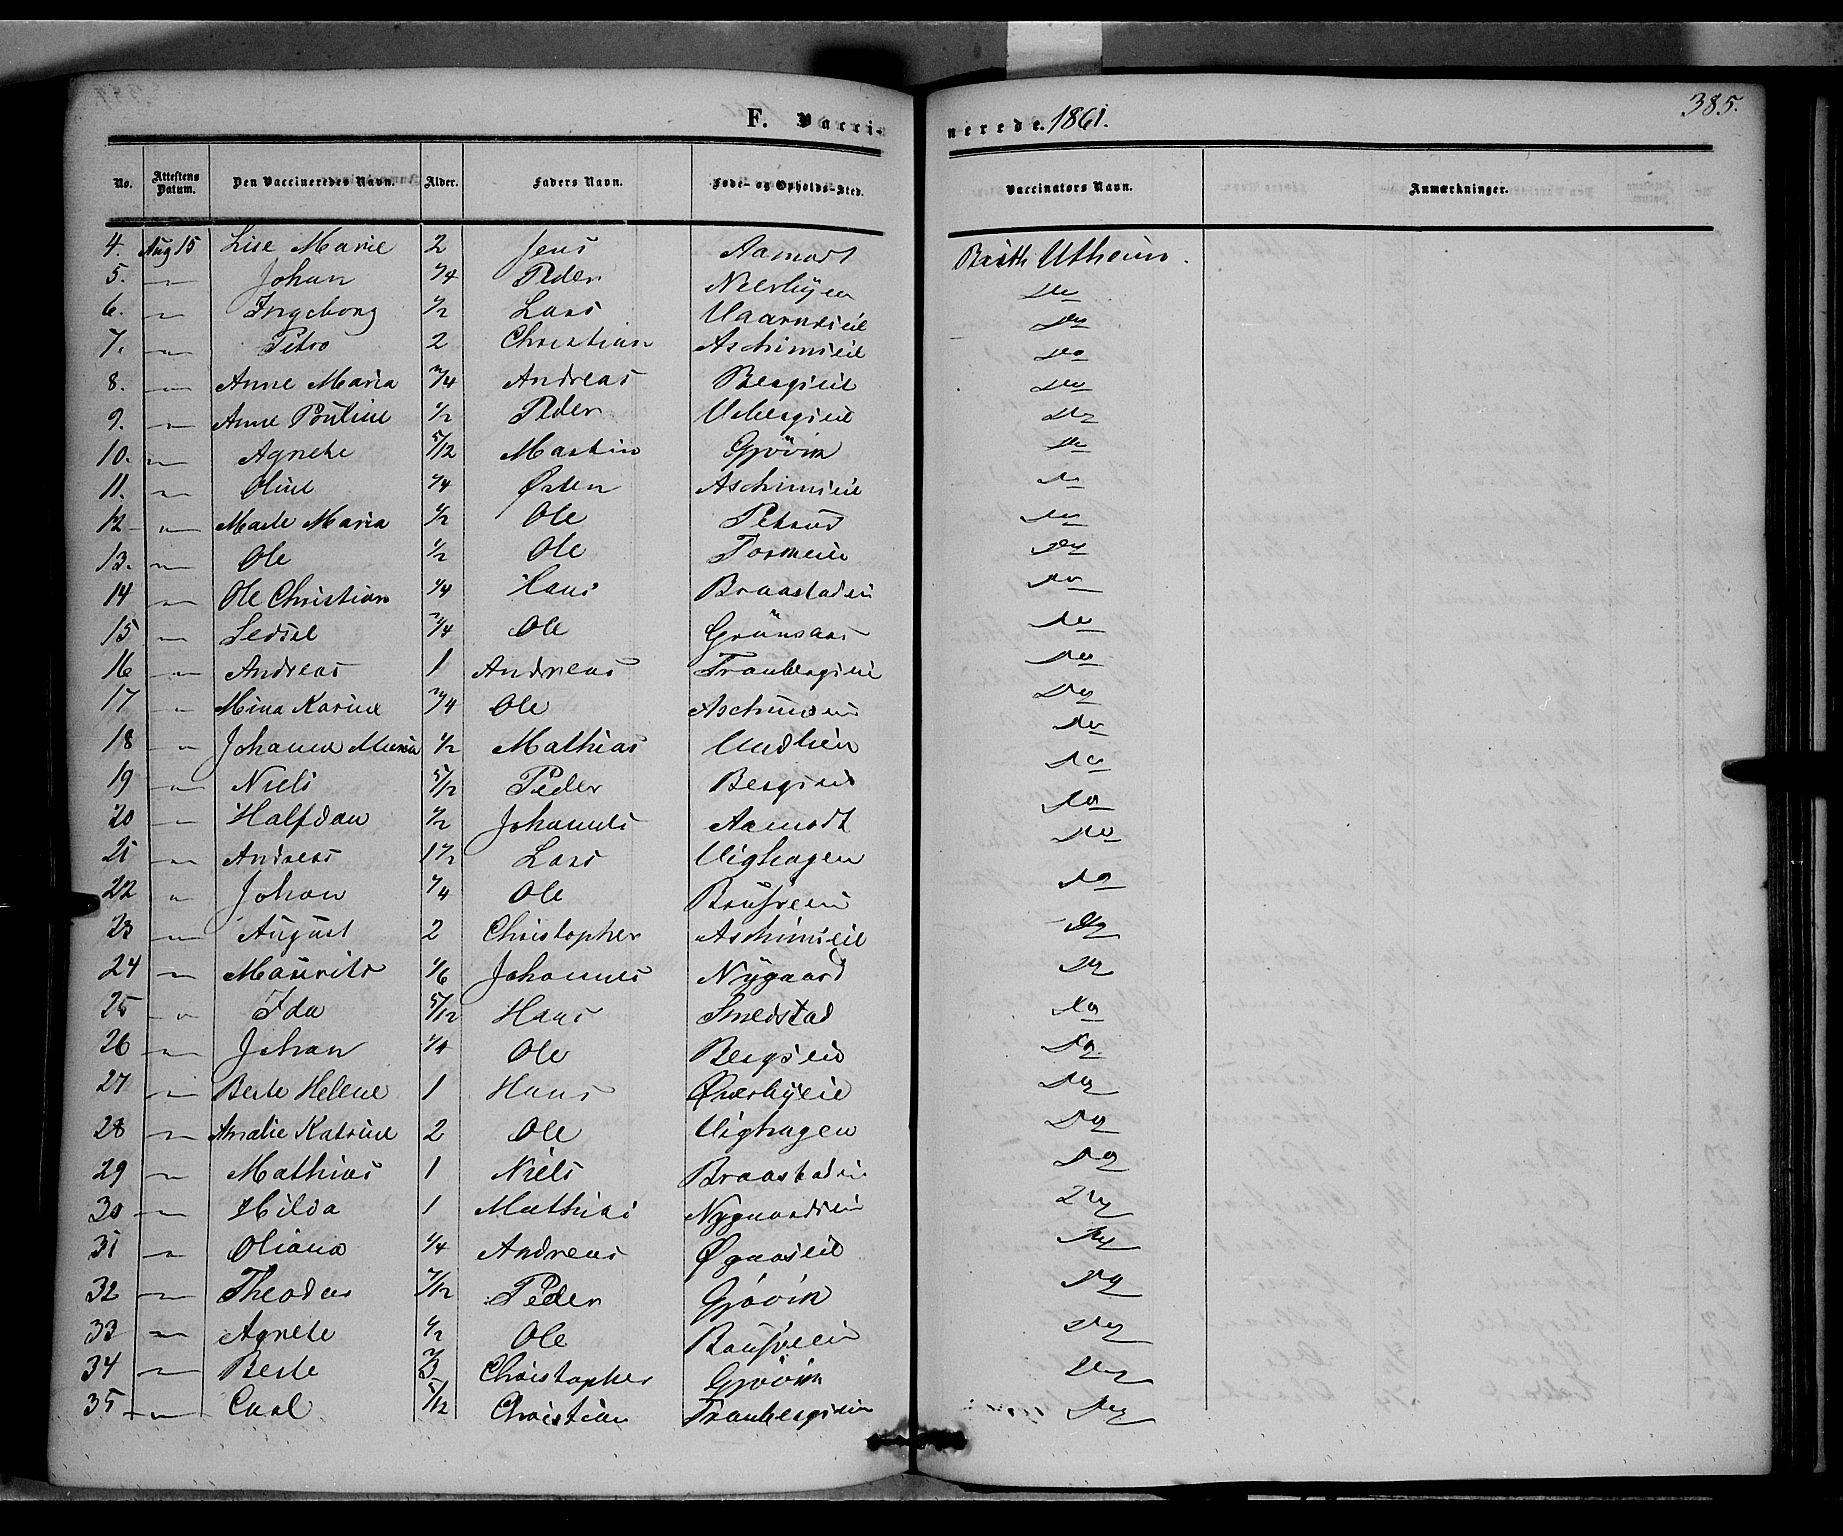 385.
F. Vaccinerede. 1861.
No. Attestens Datum. Den Vaccineredes Navn. Alder. Faders Navn. Føde- og Opholds-Sted. Vaccinators Navn. Anmærkninger.
4. Aug 15 Lise Marie 2 Jens Aamodt Utheim.
5. " Johan 1/4 Peder Neerbyen Do
6. " Ingeborg 1/2 Lars Do
7. " Petro 2 Christian Aschimseie Do
8. " Anne Maria 3/4 Andreas Bergseie Do
9. " Anne Pouline 1/2 Peder Do
10. " Agnete 5/12 Martin Gjövik Do
11. " Oline 1/4 Østen Aschimseie Do
12 " Marte Maria 1/2 Ole Do
13. " Ole 1/2 Ole Do
14 " Ole Christian 1/4 Hans Braastadeie Do
15 " Sedsel 3/4 Ole Grönsaas Do
16 " Andreas 1 Andreas Tranbergseie Do
17 " Mina Karine 3/4 Ole Aschimseie Do
18 " Johanne Maria 1/2 Mathias Do
19 " Niels 5/12 Peder Bergseie Do
20 " Halfdan 1/2 Johannes Aamodt Do
21 " Andreas 1 1/2 Lars Vighagen Do
22 " Johan 1/4 Ole Do
23 " August 2 Christopher Aschimseie Do
24 " Maurits 1/6 Johannes Nygaard Do
25 " Ida 5/12 Hans Smedstad Do
26 " Johan 1/4 Ole Bergseie Do
27 " Berte Helene 1 Hans Øverbyeie Do
28 " Amalie Katrine 2 Ole Vighagen Do
29 " Mathias 1 Niels Braastadeie Do
30 " Hilda 1 Mathias Nygaardseie Do
31 " Oliana 1/4 Andreas Øgaaseie Do
32 " Theodor 7/12 Peder Gjövik Do
33 " Agnete 1/2 Ole Do
34 " Berte 2/3 Christopher Gjövik Do
35 " Carl 5/12 Christian Tranbergseie Do